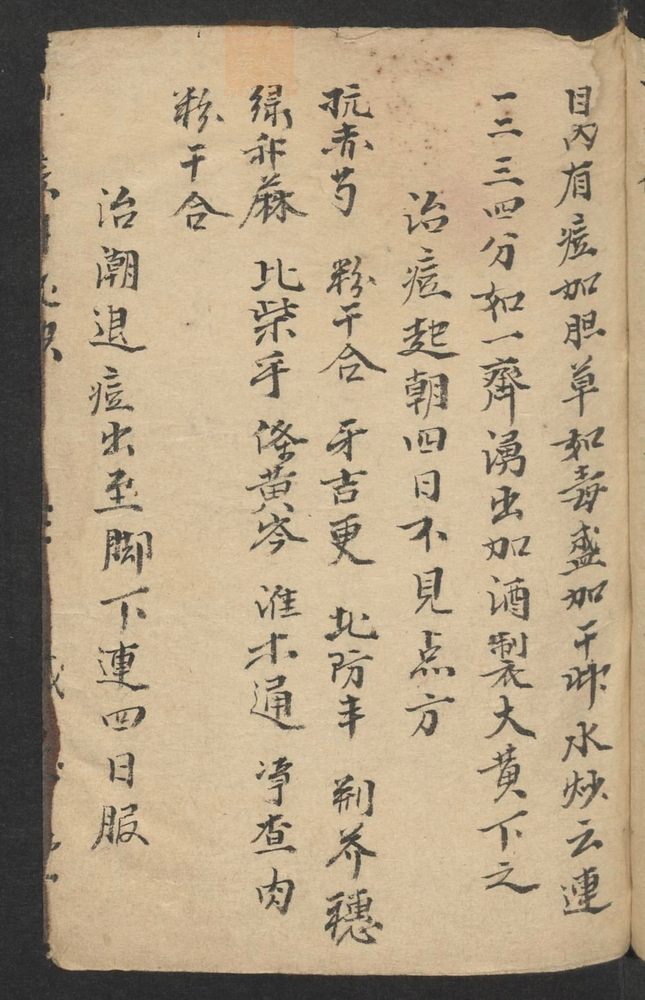 目內有痘加胆草如毒盛加干 水炒云連
一二三四分如一齊湧出加酒製大黃下之
治痘起朝四日不見点方
杭赤芍 粉干合 牙吉更 北防丰 荆芥穗
绿升蔴 比柴乎 條黃岑 淮木通 净查肉
粉干合
治潮退痘出至脚下連四日服